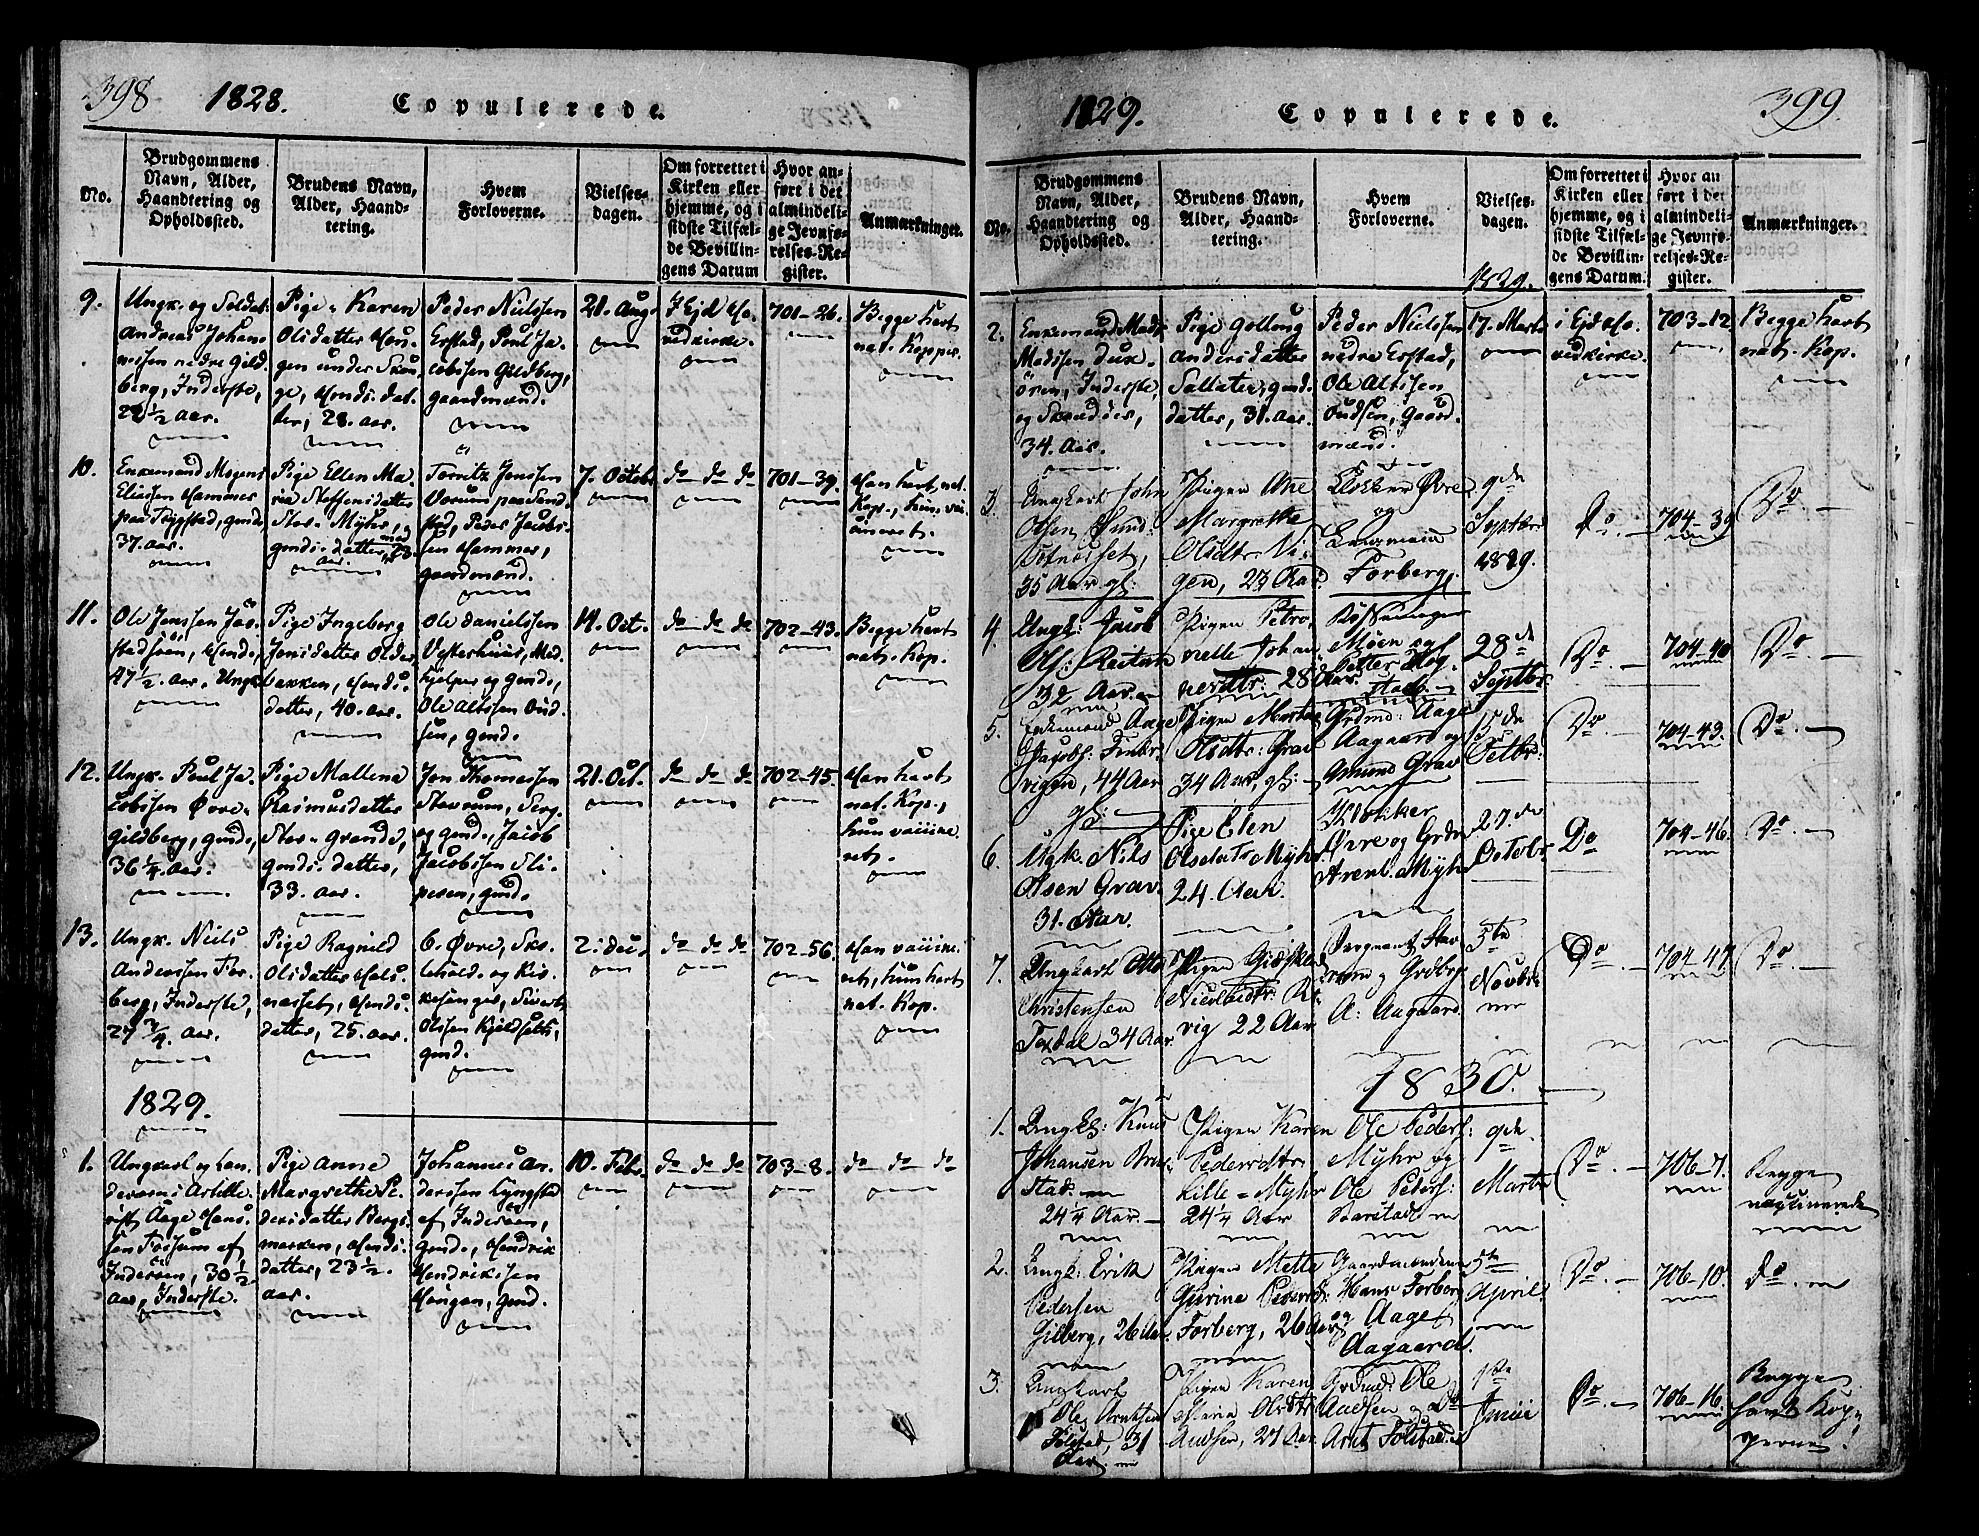 398 1828. Copulerede.
No.
Brudgommens
Navn, Alder,
Haandtering og
Opholdssted.
Brudens Navn,
Alder, Haand-
tering.
Hvem
Forloverne.
Vielses-
dagen.
Om forrettet i
Kirken eller
hjemme, og i
sidste Tilfæl-
de Bevillin-
gens Datum
Hvor an-
ført i det
almindeli-
ge Jevnfø-
relses-Re-
gister.
Anmærkninger.
9.
Ungk. og Soldat
Andreas Johan-
nessen nedre Gild-
berg, Inderste,
2½ Aar.
Pige Karen
Olsdatter Hou-
gen under Skou-
ge, Hmds. dat-
ter, 28. Aar.
Peder Nielssen
Erstad, Poul Ja-
cobssen Gildberg,
gaardmænd.
21. Aug.
i Ejd Ho-
vedkirke.
701-26.
Begge havt
nat. Kopper.
10.
Enkemand Mogens
Eliassen Hammer
paa Trygstad, gmd.
37. Aar.
Pige Ellen Ma-
ria Steffensdatter
Stor-Myhr,
gmds. datter, 23.
Aar.
Tørritz Jenssen
Vorum paa
stad, Peder Jacobs-
sen Hammer,
gaardmænd.
7. Octob.
do do do
701-39.
Han havt nat.
Kop., hun vac-
cineret.
11.
Ole Jenssen
Hmd.,
47½ Aar. Ungk.
Pige Ingeborg
Jonsdatter Older-
bakken, Hmds.
datter, 40. Aar.
Ole Danielssen
Vesterhuus, Med-
hjelper og gmd.,
Ole Altssen Oud-
sen, gmd.
14. Oct.
do do do
702-43.
Begge havt
nat. Kop.
12.
Ungk. Poul Ja-
cobssen Øvre-
Gildberg, gmd.,
36¼ Aar.
Pige Mallena
Rasmusdatter
Stor-Grande,
gmds. datter,
33. Aar.
Jon Thomassen
Stavrum, Serg.
og gmd., Jacob
Jacobssen Sli-
persen, gmd.
21. Oct.
do do do
702-45.
Han havt
nat. Kop.,
hun vaccine-
ret.
13.
Ungk. Niels
Anderssen For-
berg, Inderste,
27¾ Aar.
Pige Ragnild
Olsdatter Hals-
næsset, Hmds.
datter, 25. Aar.
C. Øvre, Sko-
lehold. og Kir-
kesanger, Sivert
Olssen Kjeldsets,
gmd.
2. Dec.
do do do
702-56.
Han vaccine-
ret, hun havt
nat. Kop.
1829.
1.
Ungkarl og Lan-
deværns Artille-
rist Aage Hans-
sen Fossum af
Inderøen, 30½
Aar, Inderste.
Pige Anne
Margrethe Pe-
dersdatter Bergs-
marken, Hmds.
datter, 23½
Aar.
Johannes An-
derssen Lyngstad
af Inderøen,
gmd., Hendrik
Hendrikssen
Hougen, gmd.
10. Feb.
do do do
703-8.
do do do
1829. Copulerede. 399.
No.
Brudgommens
Navn, Alder,
Haandtering og
Opholdssted.
Brudens Navn,
Alder, Haand-
tering.
Hvem
Forloverne.
Vielses-
dagen.
Om forrettet i
Kirken eller
hjemme, og i
sidste Tilfæl-
de Bevillin-
gens Datum.
Hvor an
ført i det
almindeli-
ge Jevnfø-
relses-Re-
gister.
Anmærkninger.
1829.
2.
Enkemand Mads
Madssen Due-
ören, Inderste,
og Skrædder,
34. Aar.
Pige Gollaug
Andersdatter
Saltater, gmds.
datter, 31. Aar.
Peder Nielssen
nedre Erstad,
Ole Altssen
Oudsen, Gaard-
mænd.
17. Marts
i Ejd Ho-
vedkirke.
703-12
Begge havt
nat. Kop.
3.
Ungkarl John
Olsen
35 Aar gl.
Pigen Ane
Margrethe
Olsdtr. Vi-
gen, 27 Aar
Klokker Øvre
og
Lensmand
Forberg.
9de
Septbr.
1829.
Do.
704-39
Do
4.
Ungk. Jacob
32 Aar.
Pigen Petro-
nelle Johan-
nesdtr. 28 Aar.
Kirkesanger
Møen og
Petter Høg-
stad.
28de
Septbr.
Do.
704-40
Do.
5.
Enkemand Aage
Jacobs: Finks-
vigen, 44 Aar
gl:
Pigen Martha
Olsdtr: Grav
34 Aar, gl:
Grdmd: Aage
Aagaard og
Gmund Grav
15de
Octbr.
Do.
704-43.
Do.
6.
Ugk. Nils
Olsen Grav.
31. Aar.
Pige Elen
Olsdatr Myhr.
24. Aar
Klokker
Øvre og Grdm
Arent. Myhr
27.de
Octobr.
Do
704-46.
Do.
7.
Ungkarl Otto
Christensen
Foxdal 34 Aar.
Pigen Gidsken
Nicolaidtr.
vig 22 Aar
Sergeant Stav-
rum og Grdbrg.
A: Aagaard.
5te
Novbr.
Do.
704-47
Do.
1830.
1.
Ungk: Knud
Johansen
stad.
24¼ Aar.
Pigen Karen
Pedersdtr.
Lille-Myhr
24¼ Aar
Ole Peders:
Myhr og
Ole Peders:
Barstad
9de.
Marts
Do.
706-7.
Begge
vaccinerede
2.
Ungk: Erik
Pedersen
Gilberg, 26 Aar.
Pigen Mette
Gurine Pedersdtr
Forberg, 26 Aar
Gaardmændene
Hans Forberg
og Aage
Aagaard.
5te
April
Do.
706-10.
Do.
3.
Ungkarl
Ole Arntsen
Folstad, 31
Aar.
Pigen Karen
Maria Olsdtr
Audsen, 27 Aar
Grdmd: Ole
Audsen og Do
Arnt Folstad.
1ste
Junii
Do.
706-16.
Begge
havt Kop-
perne.